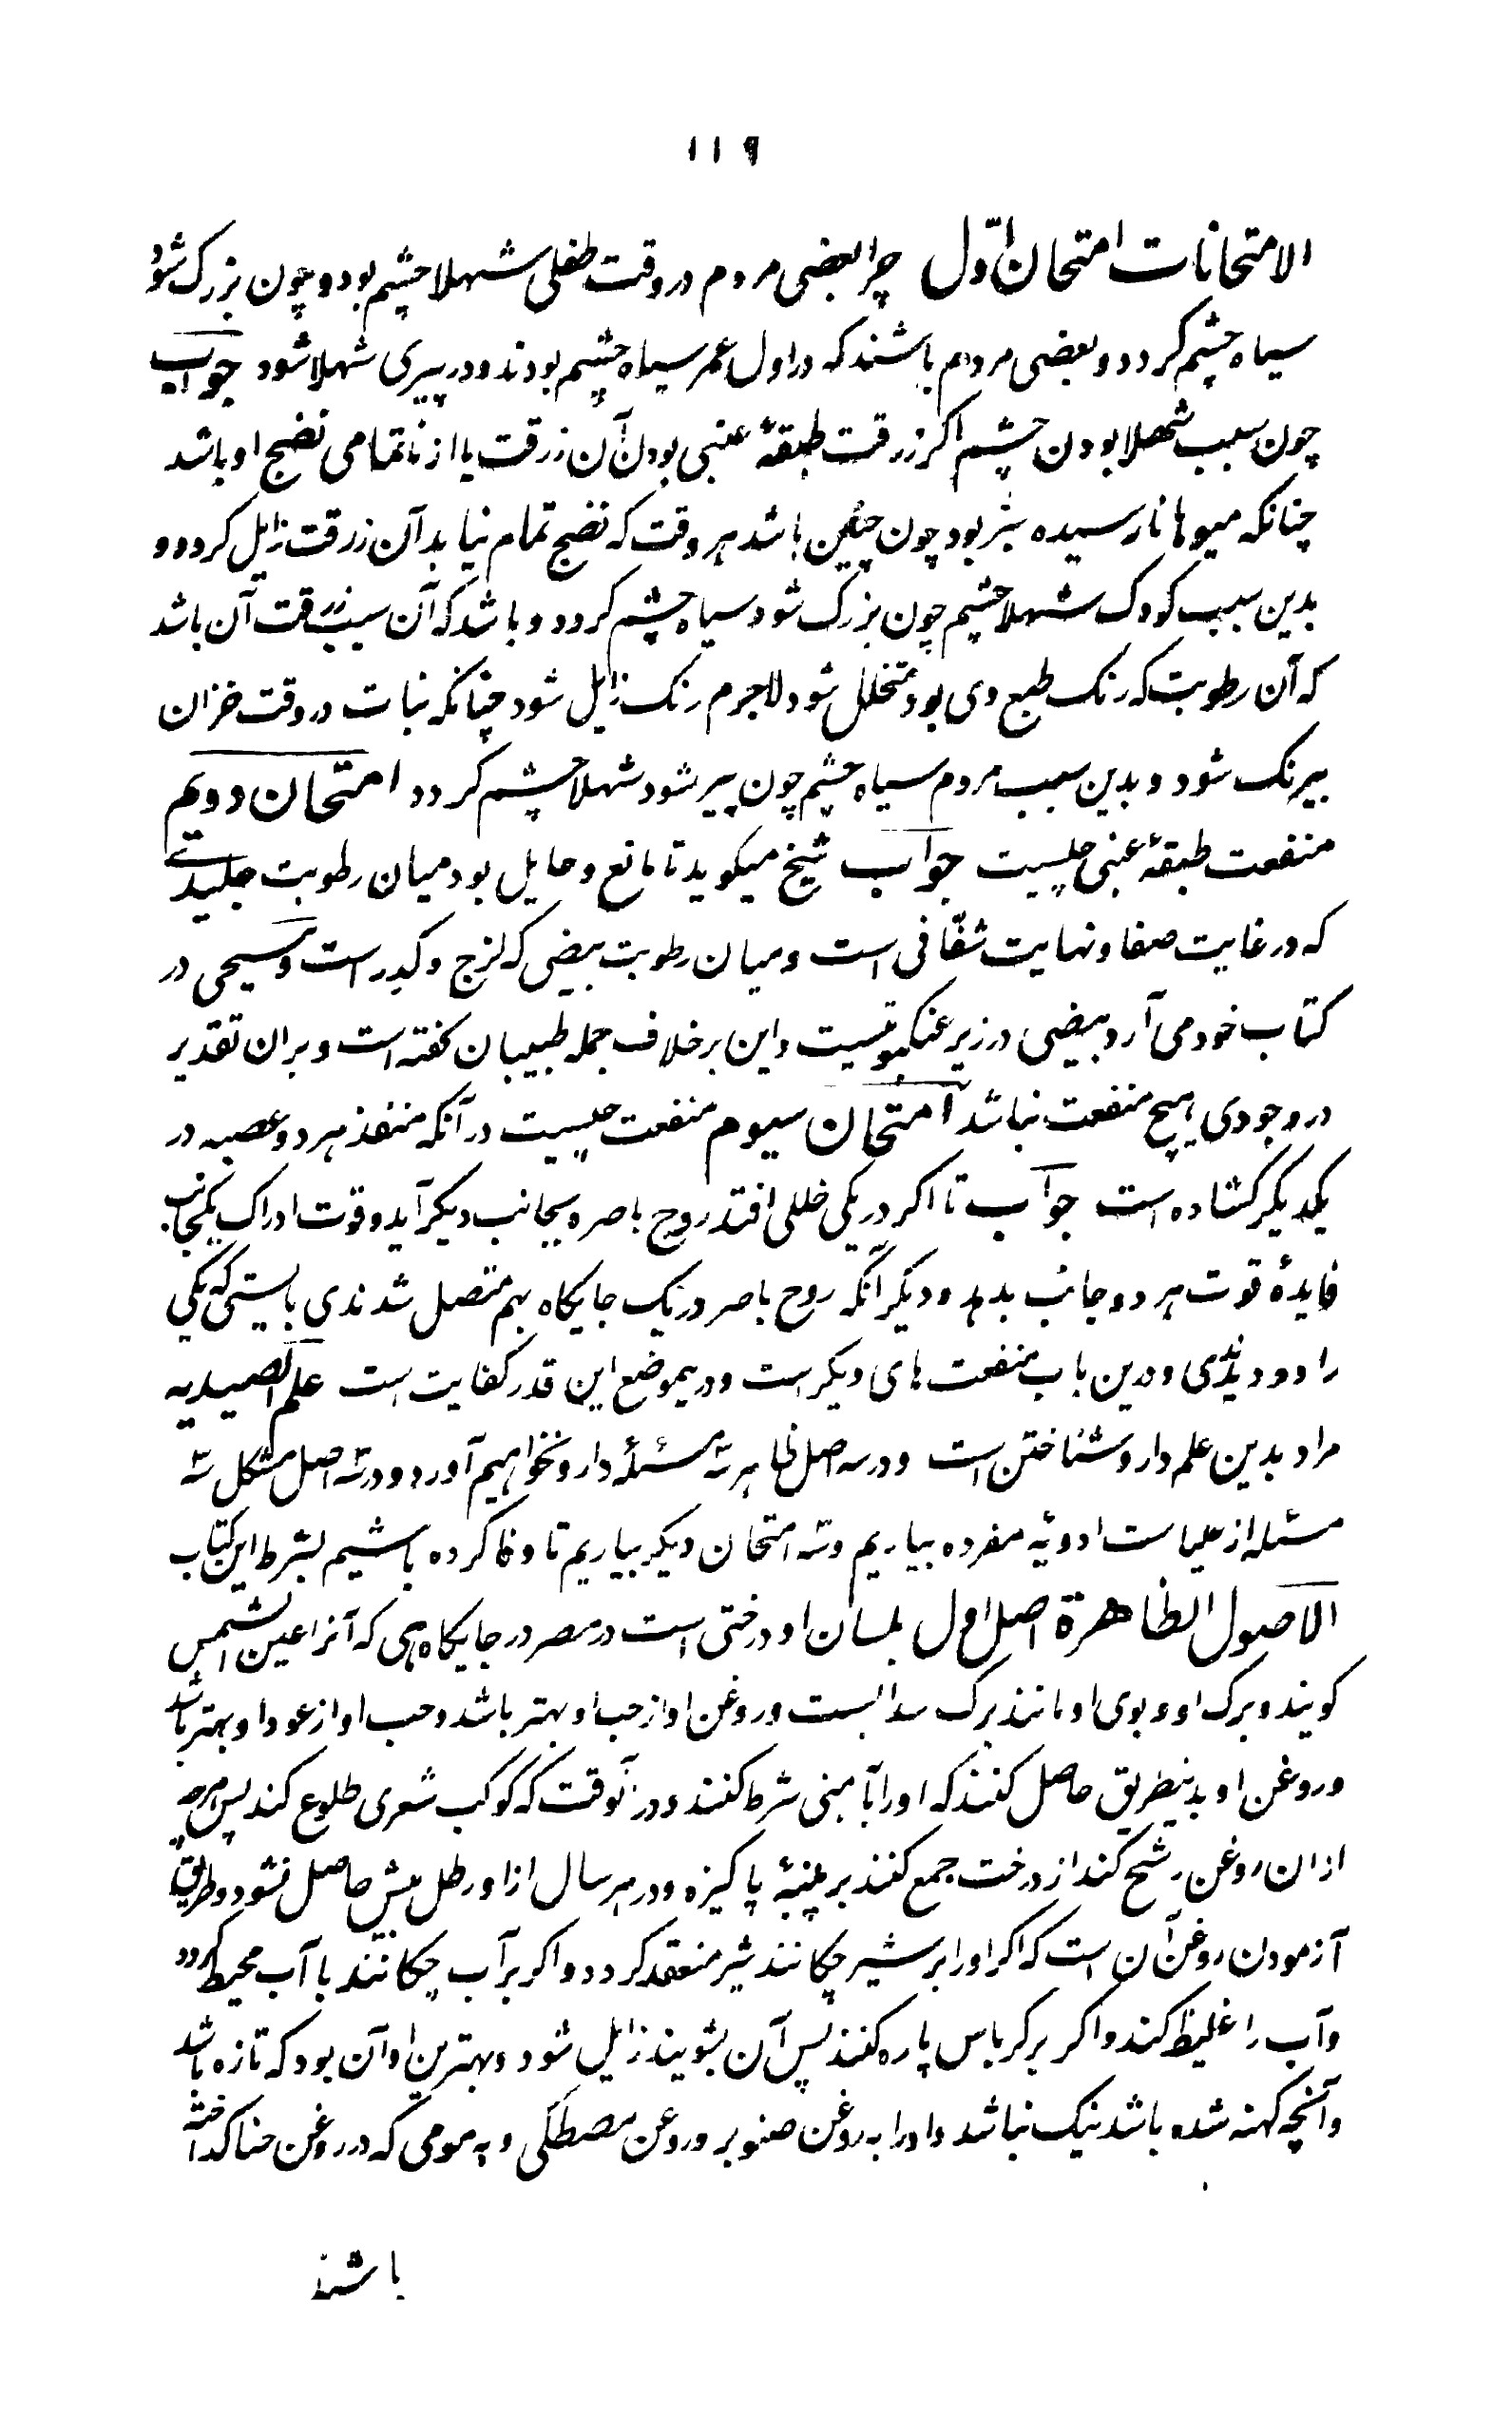 ۱۱۹
الامتحانات امتحان اوّل چرا بعضی مردم در وقت طفلی شهلا چشم بود و چون بزرک شود
سیاه چشم کردد و بعضی مردم باشند که در اول عمر سیاه چشم بودند و در پیری شهلا شود جواب
چون سبب شهلا بودن چشم اکر زرقت طبقۀ عنبی بود آن زرقت یا از ناتمامی نضج او باشد
چنانکه میوها نارسیده سبز بود چون چنین باشد هر وقت که نضج تمام نیابد آن زرقت زایل کردد و
بدین سبب کودک شهلا چشم چون بزرک شود سیاه چشم کردد و باشد که آن سبب زرقت آن باشد
که آن رطوبت که رنک طبع وی بود متخلل شود لاجرم رنک زایل شود چنانکه نبات در وقت خزان
بیرنک شود و بدین سبب مردم سیاه چشم چون پیر شود شهلا چشم کردد امتحان دویم
منفعت طبقۀ عنبی چیست جواب شیخ میکوید تا مانع و حایل بود میان رطوبت جلیدی
که در غایت صفا و نهایت شفّافی است و میان رطوبت بیضی که لزج و کدر است و مسیحی در
کتاب خود می آرد بیضی در زیر عنکبوتیست و این برخلاف جمله طبیبان کفته است و بران تقدیر
در وجود وی هیچ منفعت نباشد امتحان سیوم منفعت چیست در آنکه منفذ هر دو عصبه در
یکدیکر کشاده است جواب تا اکر در یکی خللی افتد روح باصره بجانب دیکر آید و قوت ادراک یکجانب
فایدۀ قوت هر دو جانب بدهد و دیکر آنکه روح باصر در یک جایکاه بهم متصل شدندی بایستی که یکی
را دو دیدندی و درین باب منفعت های دیکر است و دریموضع این قدر کفایت است علم الصیدیه
مراد بدین علم دارو شناختن است و در سه اصل ظاهر سه مسئلۀ دارو بخواهیم آورد و در سه اصل مشکل سه
مسئله از کلیات ادویۀ مفرده بیاریم و سه امتحان دیکر بیاریم تا وفا کرده باشیم بشرط این کتاب
الاصول الظاهرة اصل اول بلسان او درختی است در مصر در جایکاهی که آنرا عین الشمس
کویند و برک او و بوی او مانند برک سدابست و روغن او از حب او بهتر باشد و حب او از عود او بهتر باشد
و روغن او بدینطریق حاصل کنند که او را بآهنی شرط کنند و در آنوقت که کوکب شعری طلوع کند پس هرچه
ازان روغن رشح کند از درخت جمع کنند بر پنبۀ پاکیزه و در هر سال ازو رطل بیش حاصل نشود و طریق
آزمودن روغن آن است که اکر او را بر شیر چکانند شیر منعقد کردد و اکر بر آب چکانند با آب محیط کردد
و آب را غلیظ کند و اکر بر کرباس پاره کنند پس آن بشویند زایل شود و بهترین او آن بود که تازه باشد
و آنچه کهنه شده باشد نیک نباشد و او را به روغن صنوبر و روغن مصطکی و به مومی که در روغن حنا کداخته
باشند